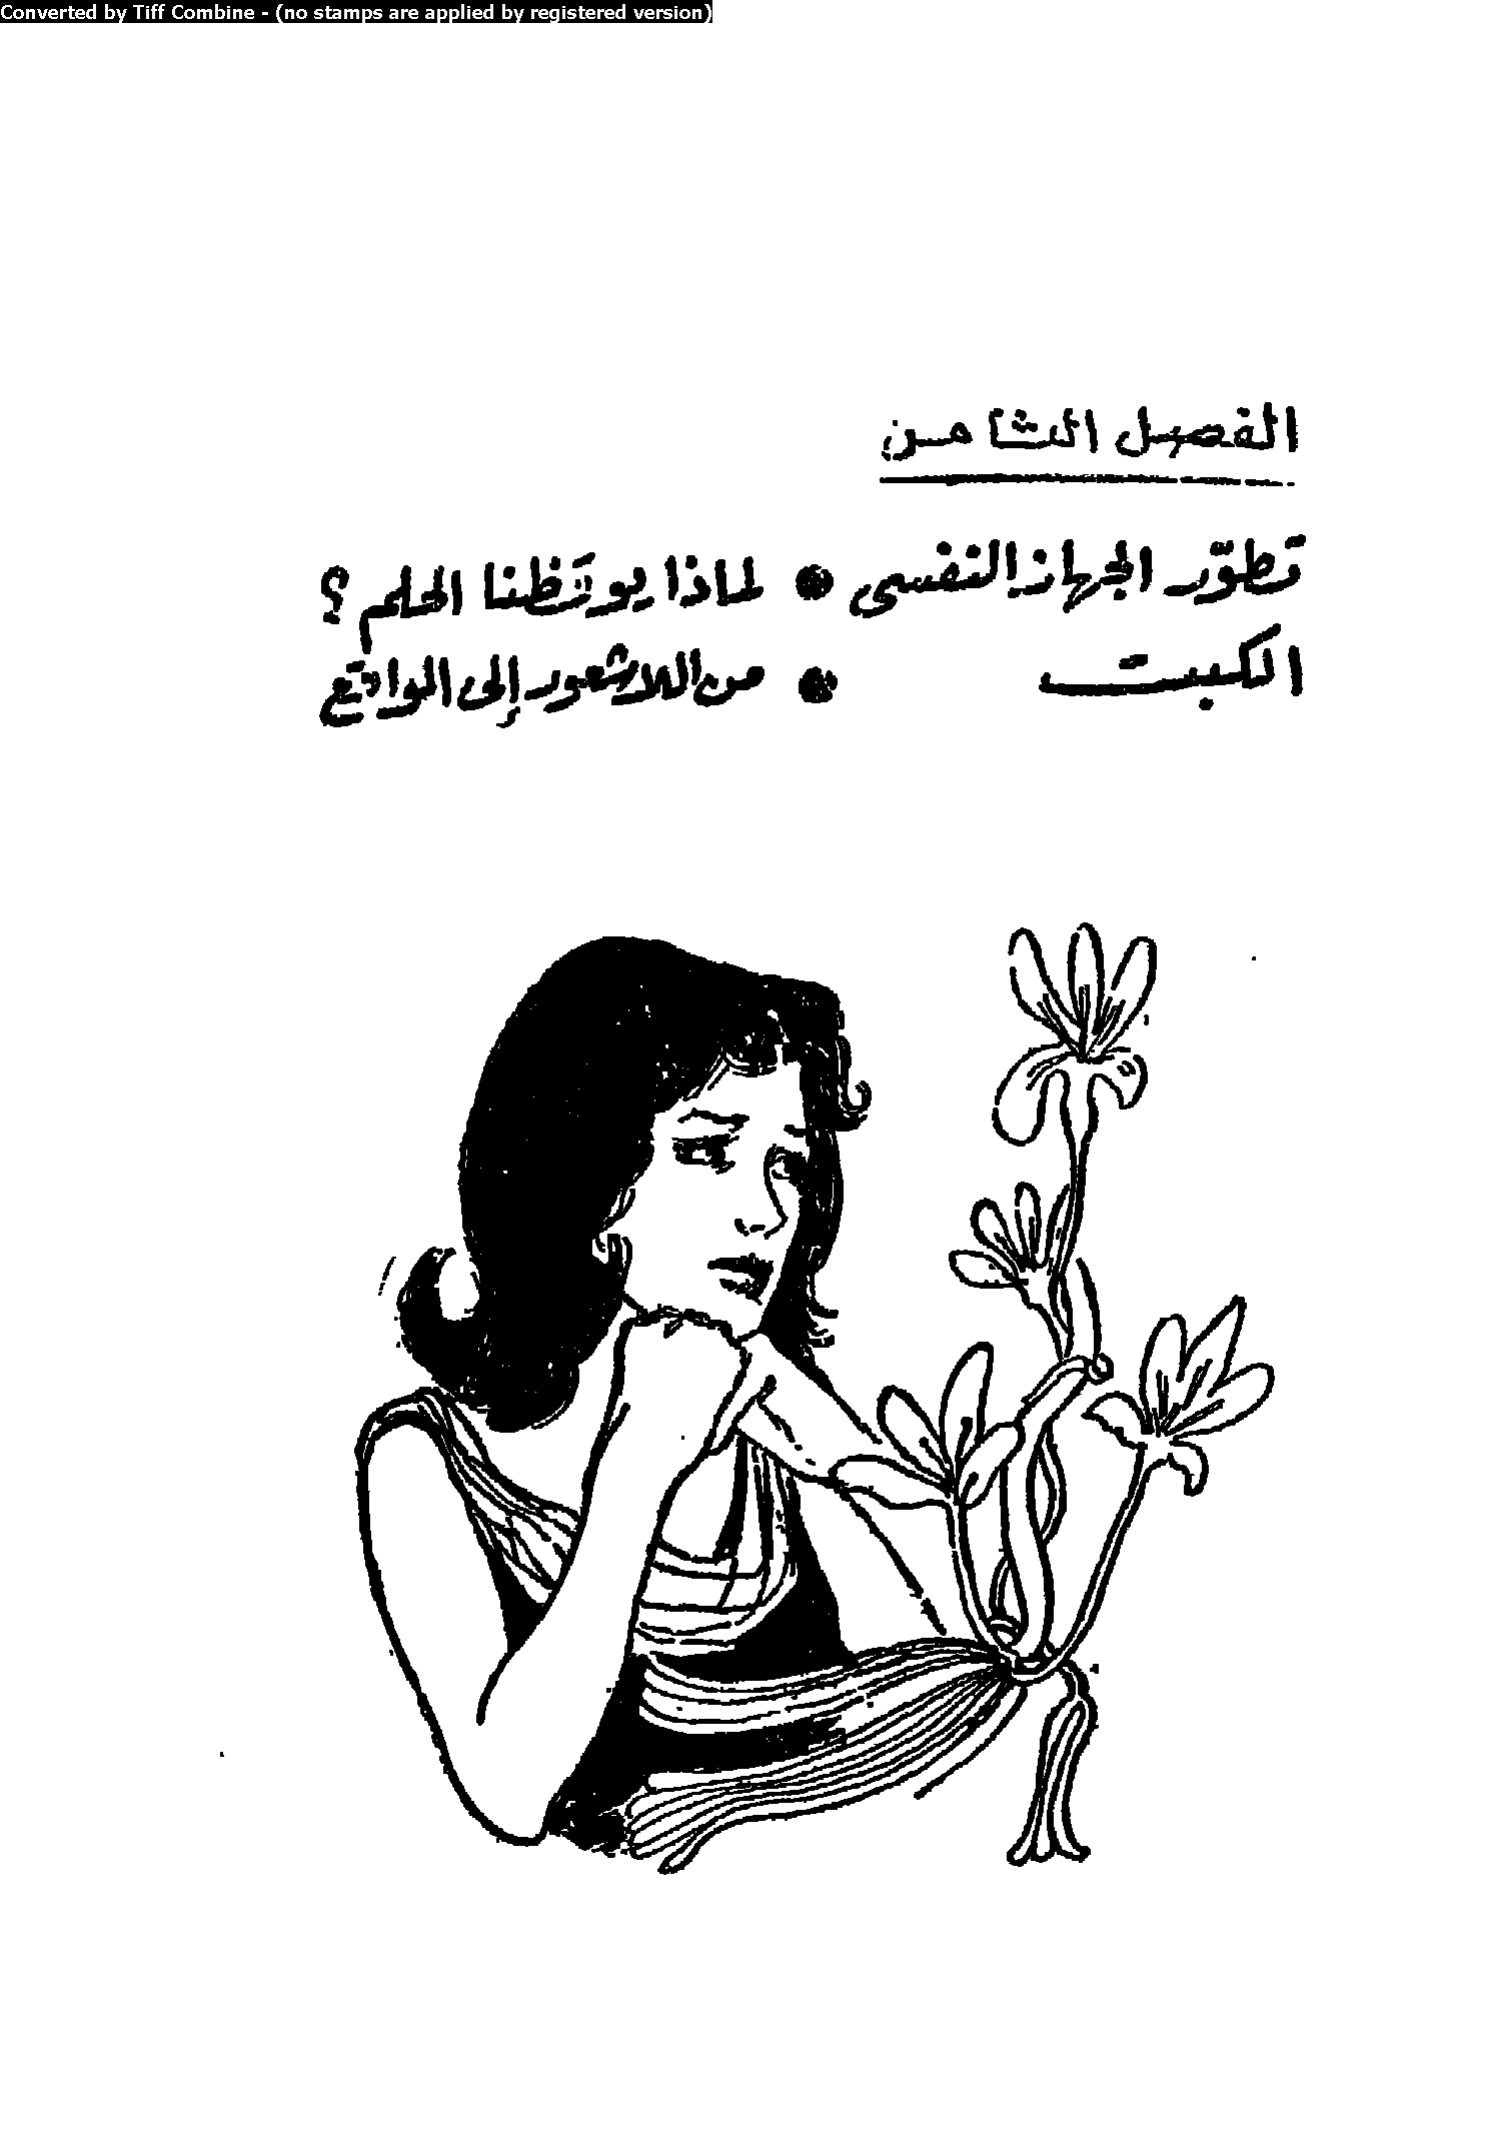 Converted by Tiff Combine - (no stamps are applied by registered version)
الفصل الثامن
تطوّر الجهاز النفسى * لماذا يوقظنا الحلم ؟
الكبت * من اللاشعور إلى الواقع